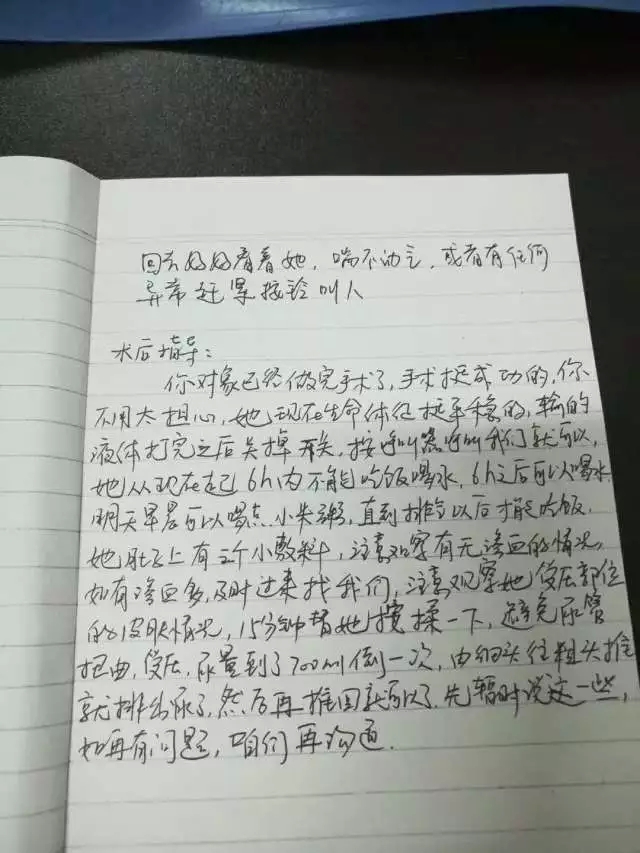 回去好好看着她，喘不动立，或者有任何
异常赶紧按铃叫人
术后指导：
你对象已经做完手术了，手术挺成功的，你
不用太担心，她现在生命体征挺平稳的，输的
液体打完之后关掉开关，按呼叫器呼叫我们就可以，
她从现在起6h内不能吃饭喝水，6h之后可以喝水
明天早晨可以喝点小米粥，直到排气以后才能吃饭．
她肚子上有三个小敷料，注意观察有无渗血的情况，
如有渗血多，及时过来找我们，注意观察她受压部位
的皮肤情况，15分钟替她按揉一下，避免尿管
扭曲，受压，尿量到了700ml倒一次，由细头往粗头推
就排出尿了，然后再推回就可以了．先暂时说这一些，
如再有问题，咱们再沟通．